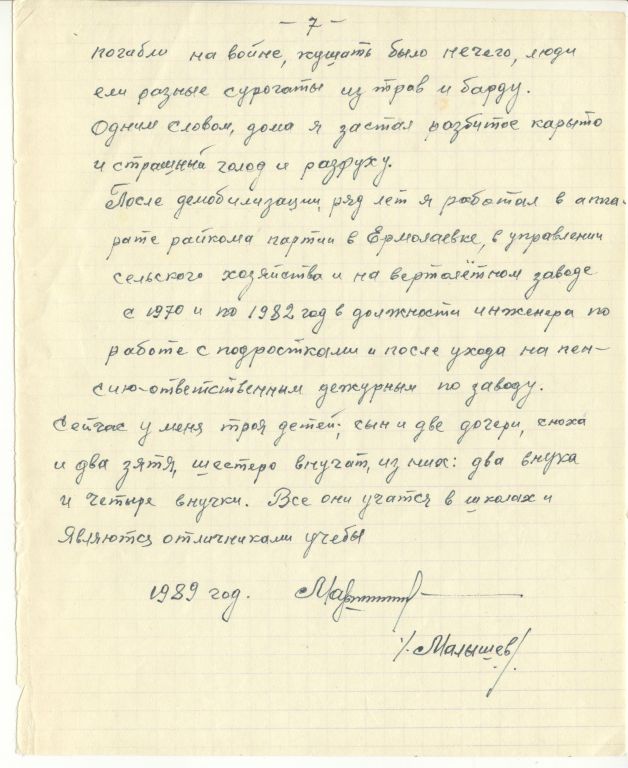 - 7 -
погибли на войне, кушать было нечего, люди
ели разные сурогаты из трав и барду.
Одним словом, дома я застал разбитое карыто
и страшный голод и разруху.
После демобилизации, ряд лет я работал в аппа-
рате райкома партии в Ермолаевке, в управлении
сельского хозяйства и на вертолётном заводе
с 1970 и по 1982 год в должности инженера по
работе с подростками и после ухода на пен-
сию-ответственным дежурным по заводу.
Сейчас у меня троя детей; сын и две дочери, сноха
и два зятя, шестеро внучат, из них: два внука
и четыре внучки. Все они учатся в школах и
являются отличниками учебы
1989 год.
/Малышев/